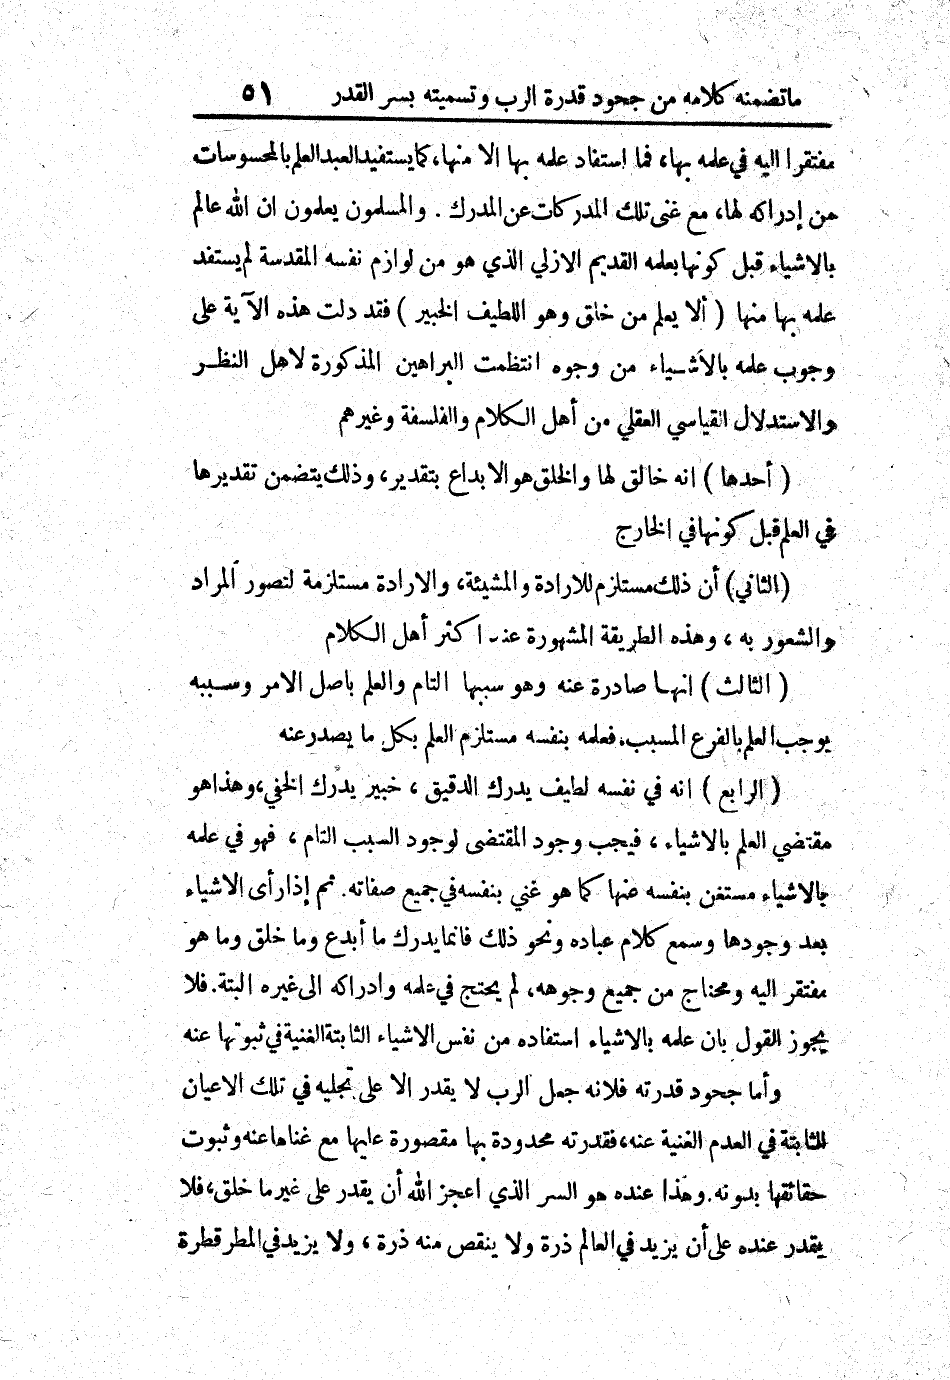 ماتضمنه كلامه من جحود قدرة الرب وتسميته بسر القدر ٥١
مفتقرا اليه في علمه بها، فما استفاد علمه بها الا منها، كما يستفيد العبد العلم بالمحسوسات
من إدراكه لها، مع غنى تلك المدركات عن المدرك . والمسلمون يعلمون ان الله عالم
بالاشياء قبل كونها بعلمه القديم الازلي الذي هو من لوازم نفسه المقدسة لم يستفد
علمه بها منها ( ألا يعلم من خلق وهو اللطيف الخبير ) فقد دلت هذه الآية على
وجوب علمه بالأشياء من وجوه انتظمت البراهين المذكورة لاهل النظر
والاستدلال القياسي العقلي من أهل الكلام والفلسفة وغيرهم
( أحدها ) انه خالق لها والخلق هو الابداع بتقدير، وذلك يتضمن تقديرها
في العلم قبل كونها في الخارج
(الثاني) أن ذلك مستلزم للارادة والمشيئة، والارادة مستلزمة لتصور المراد
والشعور به ، وهذه الطريقة المشهورة عند اكثر أهل الكلام
( الثالث ) انها صادرة عنه وهو سببها التام والعلم باصل الامر وسببه
يوجب العلم بالفرع المسبب. فعلمه بنفسه مستلزم العلم بكل ما يصدر عنه
( الرابع ) انه في نفسه لطيف يدرك الدقيق ، خبير يدرك الخفي، وهذا هو
مقتضي العلم بالاشياء ، فيجب وجود المقتضى لوجود السبب التام ، فهو في علمه
بالاشياء مستغن بنفسه عنها كما هو غني بنفسه في جميع صفاته. ثم إذا رأى الاشياء
بعد وجودها وسمع كلام عباده ونحو ذلك فانما يدرك ما أبدع وما خلق وما هو
مفتقر اليه ومحتاج من جميع وجوهه، لم يحتج في علمه وادراكه الى غيره البتة. فلا
يجوز القول بان علمه بالاشياء استفاده من نفس الاشياء الثابتة الغنية في ثبوتها عنه
وأما جحود قدرته فلانه جعل الرب لا يقدر الا على تجليه في تلك الاعيان
الثابتة في العدم الغنية عنه، فقدرته محدودة بها مقصورة عليها مع غناها عنه وثبوت
حقائقها بدونه. وهذا عنده هو السر الذي اعجز الله أن يقدر على غير ما خلق، فلا
يقدر عنده على أن يزيد في العالم ذرة ولا ينقص منه ذرة ، ولا يزيد في المطر قطرة